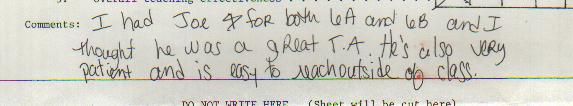 Comments: I had Joe for both 6A and 6B and I
thought he was a great T.A. He's also very
patient and is easy to reach outside of class.
DO NOT WRITE HERE (Sheet will be cut here)